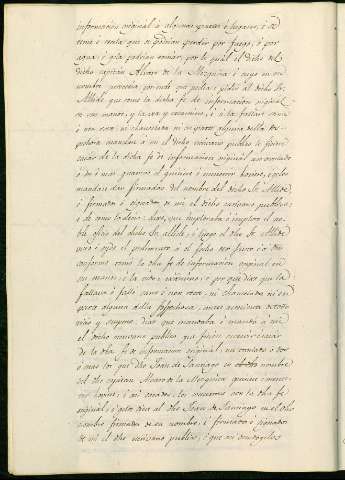 informacion original á algunas partes é lugares, é se
temia é recela que se podrian perder por fuego, ó por
agua, é gela podrian tomar, por lo qual el dicho del
dicho capitan Alvaro de la Mezquita é suyo en su
nombre pereceria, por ende que pedia é pidió al dicho Sr.
Allide, que tome la dicha fe de informacion original
en sus manos, é la vea é examine, é si la fallare sana
é non rota, ni chancelada ni en parte alguna della sos-
pechosa mandase á mi el dicho escribano publico le ficiese
sacar de la dicha fe de informacion original un treslado
ó dos ó mas quantos él quisiere é menester hoviere, é gelos
mandase dar firmados del nombre del dicho Sr. Allide,
é firmados é signados de mi el dicho escribano publico,
é de como lo decia dixo, que imploraba é imploró el no-
ble oficio del dicho Sr. Allide, é luego el dho Sr. Allide
visto é oido el pedimento á él fecho
conforme tomó la dha fe de informacion original en
sus manos, é la vido é examinó, é por que dixo que la
fallava é falló sana é non rota, ni chancelada ni en
parte alguna della sospechosa, antes caresciente de todo
vicio y sospecha, dixo que mandaba é mandó á mi
el dicho escribano publico que ficiese escribir é sacar
de la dha fe de informacion original, un treslado ó dos
ó mas los que dho Joan de Santiago en el dicho nombre
del dho capitan Alvaro de la Mezquita quisiere é menes-
ter hoviere, é asi sacados, los mandava con la dha fe
original, é gelos diese al dho Joan de Santiago en el dho
nombre firmados de su nombre, é firmados é signados
de mi el dho escribano publico, é que asi dandogelos